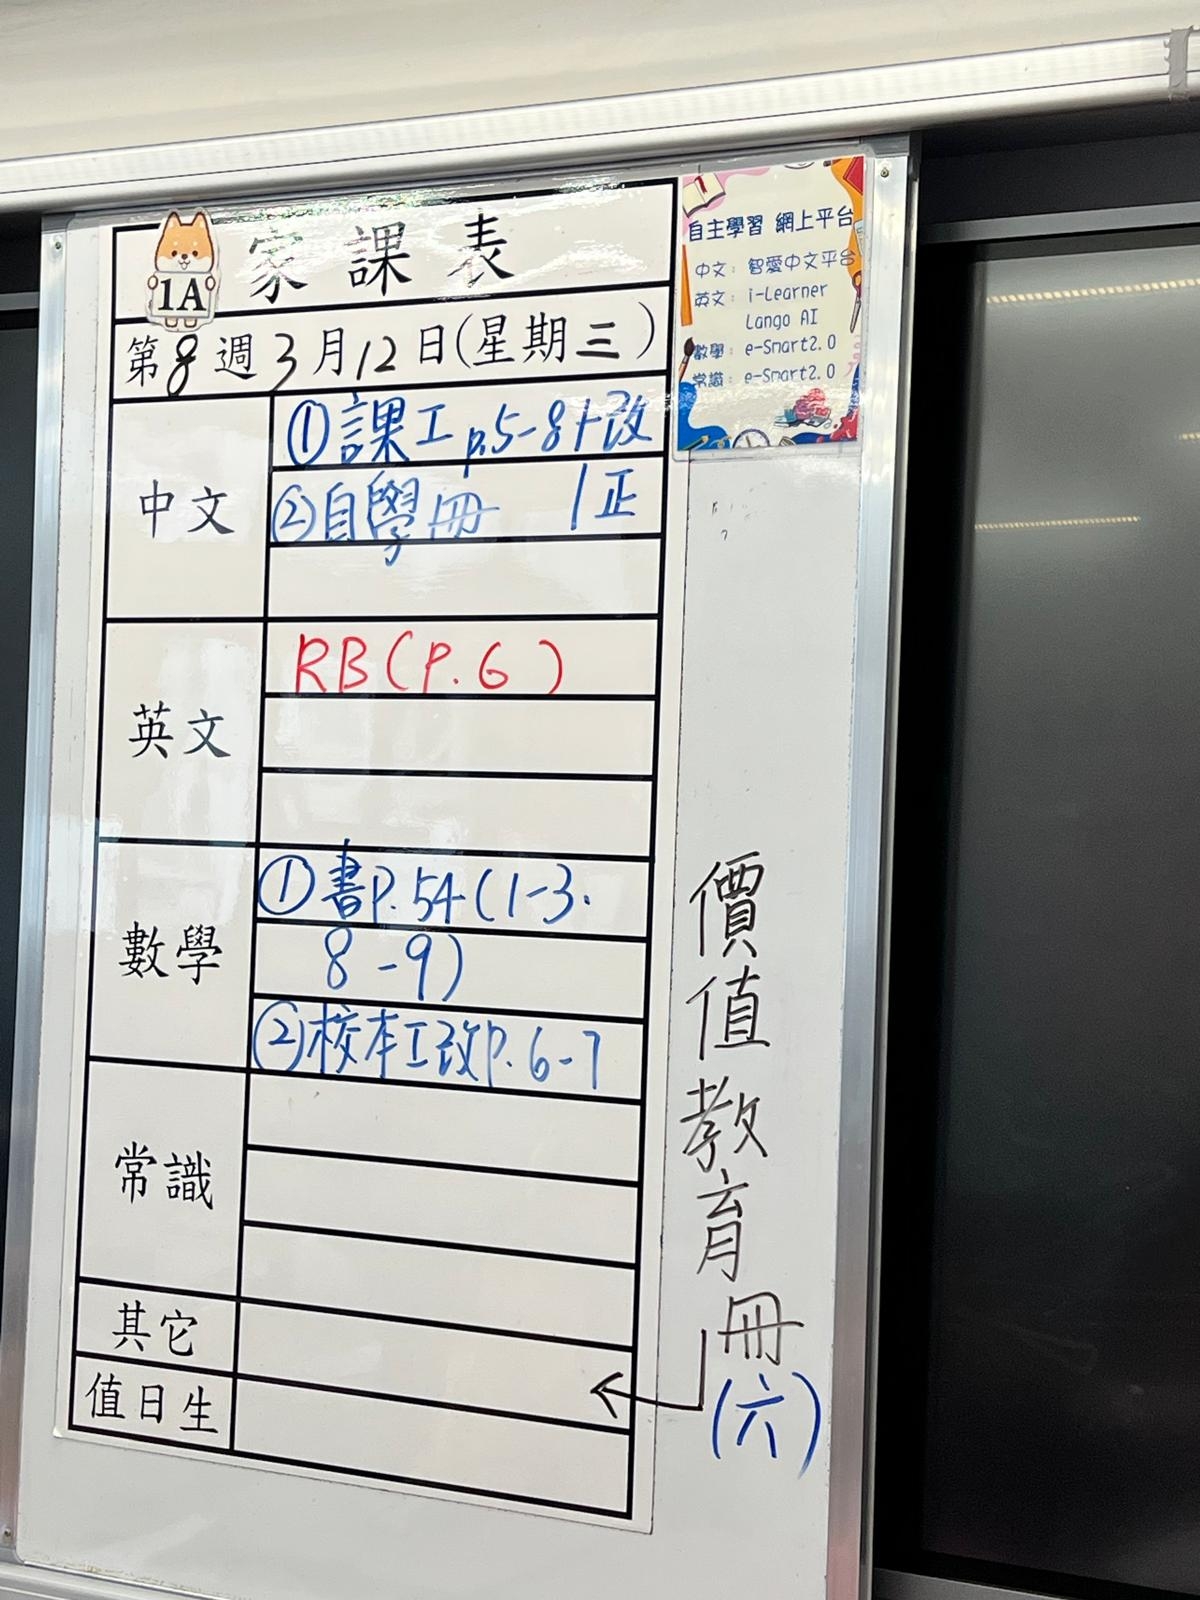 家課表
1A
第8週3月12日(星期三)
中文
①課工p.5-8十改
②自學冊 1正
英文
RB(P.6)
數學
①書P.54(1-3.
8-9)
②校本工改P.6-7
常識
其它
值日生
自主學習 網上平台
中文：智愛中文平台
英文：i-Learner
Lango AI
數學：e-Smart2.0
常識：e-Smart2.0
價值教育冊
(六)